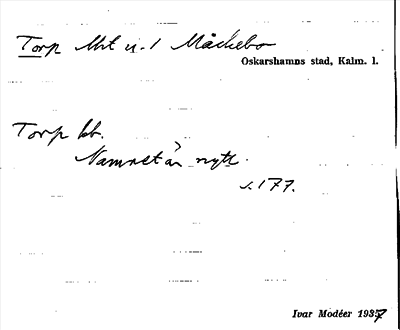 Torp Mt u. 1 Måckebo
Oskarshamns stad, Kalm. l.
Torp bb.
Namnet är nytt.
s. 177.
Ivar Modéer 1937